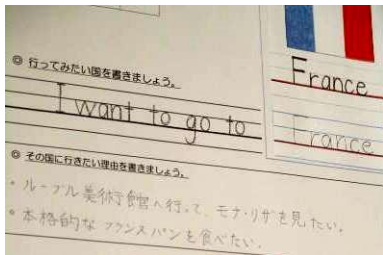 ◎ 行ってみたい国を書きましょう。
France
I want to go to
France
◎ その国に行きたい理由を書きましょう。
・ルーブル美術館へ行って、モナ・リザを見たい。
・本格的なフランスパンを食べたい。